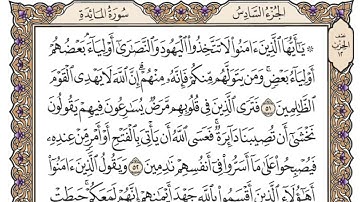 سُورَةُ المَائِدَةِ الجُزْءُ السَّادِسُ
۞ يَٰٓأَيُّهَا ٱلَّذِينَ ءَامَنُوا۟ لَا تَتَّخِذُوا۟ ٱلْيَهُودَ وَٱلنَّصَٰرَىٰٓ أَوْلِيَآءَ بَعْضُهُمْ
أَوْلِيَآءُ بَعْضٍ وَمَن يَتَوَلَّهُم مِّنكُمْ فَإِنَّهُۥ مِنْهُمْ إِنَّ ٱللَّهَ لَا يَهْدِى ٱلْقَوْمَ
ٱلظَّٰلِمِينَ ٥١ فَتَرَى ٱلَّذِينَ فِى قُلُوبِهِم مَّرَضٌ يُسَٰرِعُونَ فِيهِمْ يَقُولُونَ
نَخْشَىٰٓ أَن تُصِيبَنَا دَآئِرَةٌ فَعَسَى ٱللَّهُ أَن يَأْتِىَ بِٱلْفَتْحِ أَوْ أَمْرٍ مِّنْ عِندِهِۦ
فَيُصْبِحُوا۟ عَلَىٰ مَآ أَسَرُّوا۟ فِىٓ أَنفُسِهِمْ نَٰدِمِينَ ٥٢ وَيَقُولُ ٱلَّذِينَ ءَامَنُوٓا۟
أَهَٰٓؤُلَآءِ ٱلَّذِينَ أَقْسَمُوا۟ بِٱللَّهِ جَهْدَ أَيْمَٰنِهِمْ إِنَّهُمْ لَمَعَكُمْ حَبِطَتْ